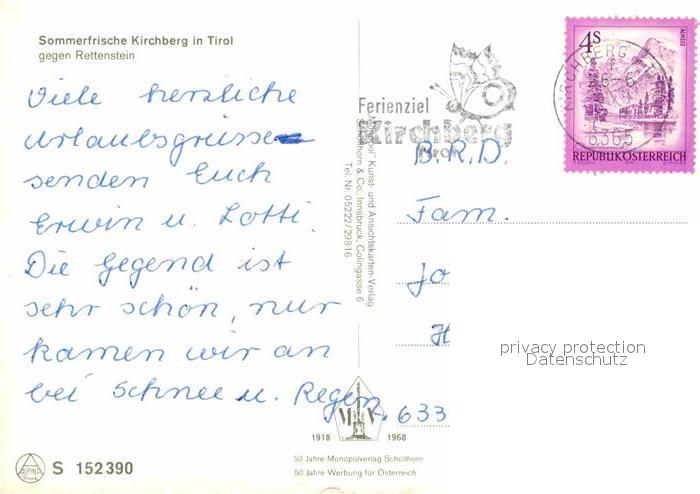 Sommerfrische Kirchberg in Tirol
gegen Rettenstein
Viele herzliche
Urlaubsgrüsse
senden Euch
Erwin u. Lotti.
Die Gegend ist
sehr schön, nur
kamen wir an
bei Schnee u. Regen.
ALPINA
S 152390
"Monopol" Kunst- und Ansichtskarten-Verlag
Schöllhorn & Co., Innsbruck, Colingasse 6
Tel. Nr. 05222/29816
1918 1968
50 Jahre Monopolverlag Schöllhorn
50 Jahre Werbung für Österreich
Ferienziel
Kirchberg
Tirol
KIRCHBERG
6365
4S
ALMSEE
REPUBLIK ÖSTERREICH
B.R.D.
Fam.
Jo
H
privacy protection
Datenschutz
633